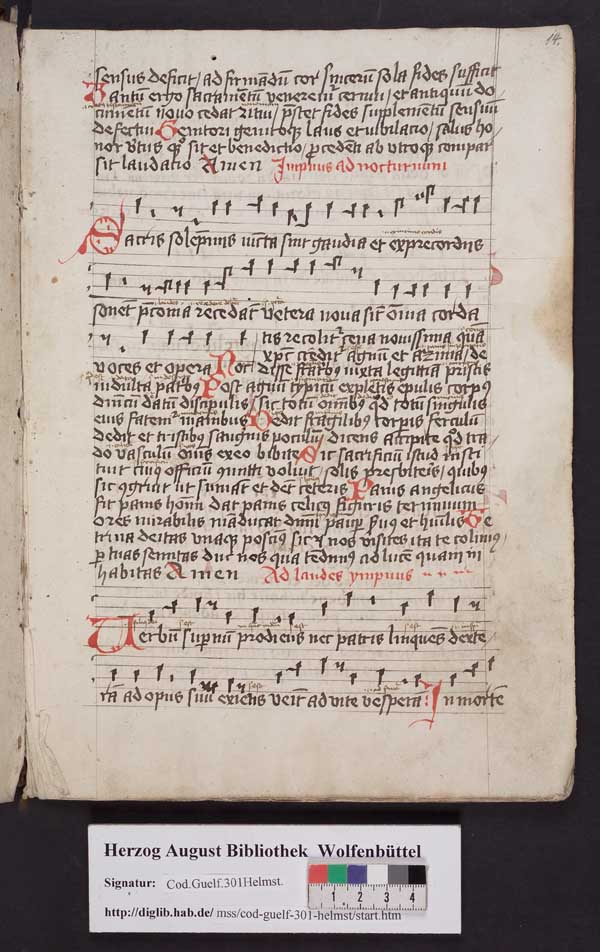 14.
sensus deficit / ad firmādū cor sīncerū sola fides sufficit
Tantū ergo sacramētū veneremr cernui / et antiquū do-
cumētū novo cedat ritui / p̄stet fides supplemētū sensuū
defectui Genitori genitoq̄ laus et iubilacio / salus ho-
nor virtus q̄ sit et benedictio / p̄cedenti ab vtroq̄ compar
sit laudatio Amen Impnus ad nocturnum
Sacris solēpniis iūcta sint gaudia et ex precordiis
sonēt p̄conia recedāt vetera nova sīt oīnia corda
voces et opera Noctis recolitr cena novissima quā
xpc creditr agnū et azima / de-
disse fratibꝯ iuxta legittīa priscis
indulta patribꝯ Post agnū typicū expletis epulis corpꝯ
dnīcū datū discipulis / sic totū omībꝯ qd totū singulis
eius fatemr manibus Dedit fragilibꝯ corpis ferculū
dedit et tristibꝯ sanguīs poculū / dicens accipite qd tra-
do vasculū omēs ex eo bibite Sic sacrificiū istud insti-
tuit cuiꝯ officiū comitti voluit / solis presbiteris / quibꝯ
sic ꝯgruit ut sumāt et dēt ceteris Panis angelicus
fit panis hoīm dat panis celicꝯ figuris terminum
O res mirabilis māducat dnm paup̄ suꝯ et hūilis Te
trina deitas vnaq̄ poscimꝯ sic nos visites ita te colimꝯ /
p̄ tuas semitas duc nos qua tēdimꝯ ad lucē quam in-
habitas Amen Ad laudes ympnus
Uerbū sup̄nū prodiens nec patris linquēs dexte-
rā ad opus suū exiens venit ad vite vesperā In mortē
Herzog August Bibliothek Wolfenbüttel
Signatur: Cod.Guelf.301Helmst.
1 2 3 4
http://diglib.hab.de/ mss/cod-guelf-301-helmst/start.htm